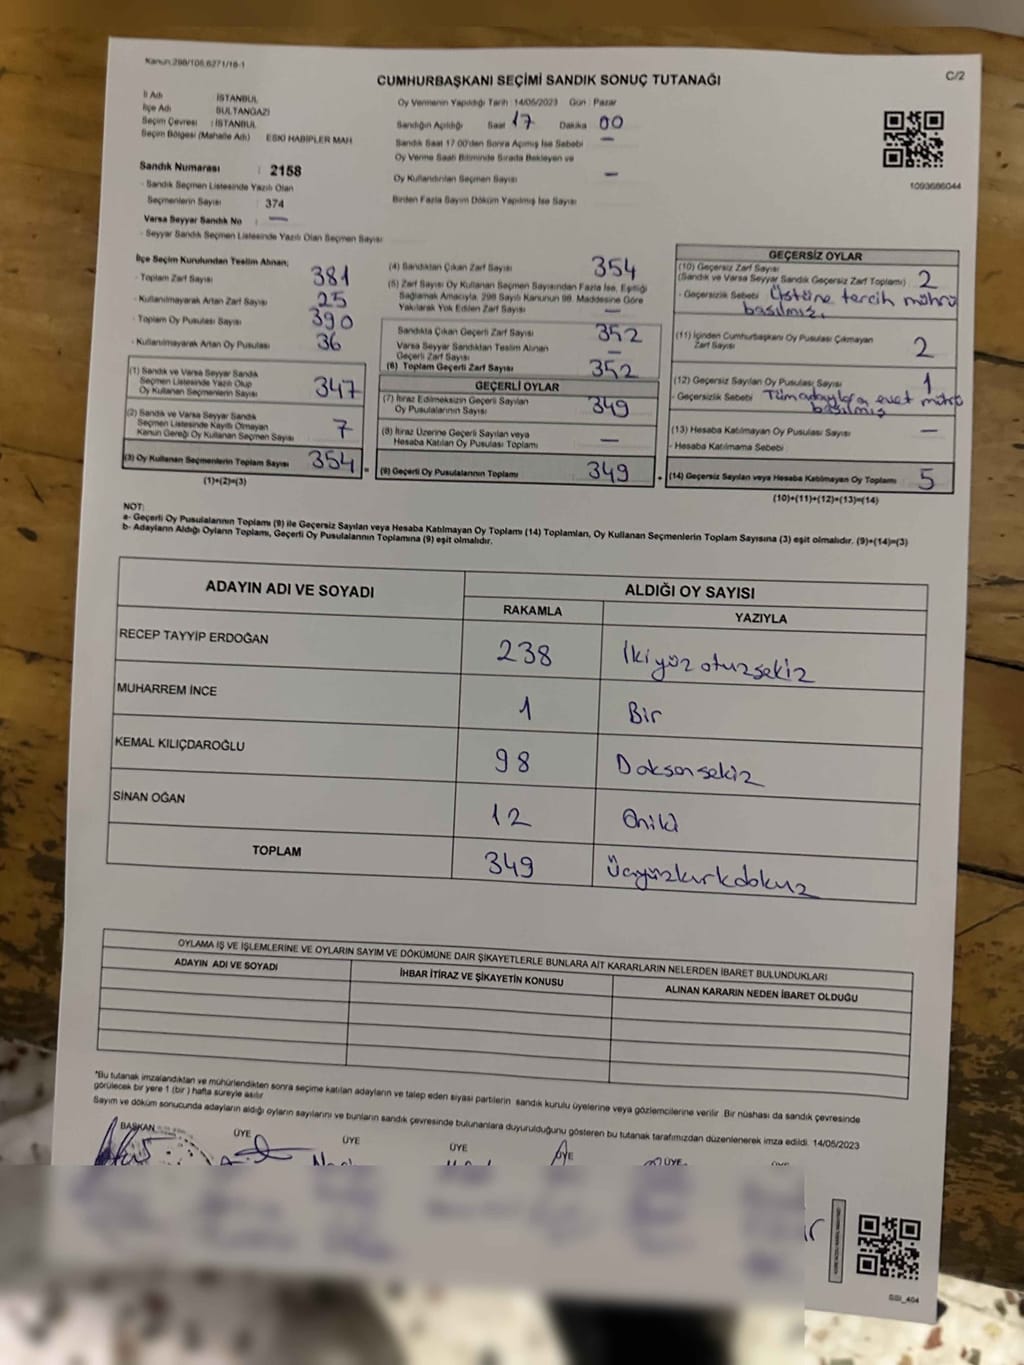 Kanun:298/105,6271/18-1
C/2
CUMHURBAŞKANI SEÇİMİ SANDIK SONUÇ TUTANAĞI
İl Adı İSTANBUL
İlçe Adı SULTANGAZİ
Seçim Çevresi : İSTANBUL
Seçim Bölgesi (Mahalle Adı) ESKİ HABİPLER MAH
Sandık Numarası : 2158
- Sandık Seçmen Listesinde Yazılı Olan
Seçmenlerin Sayısı : 374
Varsa Seyyar Sandık No : —
- Seyyar Sandık Seçmen Listesinde Yazılı Olan Seçmen Sayısı
Oy Vermenin Yapıldığı Tarih :14/05/2023 Gün : Pazar
Sandığın Açıldığı Saat 17 Dakika 00
Sandık Saat 17:00'den Sonra Açılmış İse Sebebi —
Oy Verme Saati Bitiminde Sırada Bekleyen ve
Oy Kullandırılan Seçmen Sayısı —
Birden Fazla Sayım Döküm Yapılmış İse Sayısı
1093686044
İlçe Seçim Kurulundan Teslim Alınan;
- Toplam Zarf Sayısı 381
- Kullanılmayarak Artan Zarf Sayısı 25
- Toplam Oy Pusulası Sayısı 390
- Kullanılmayarak Artan Oy Pusulası 36
(1) Sandık ve Varsa Seyyar Sandık
Seçmen Listesinde Yazılı Olup
Oy Kullanan Seçmenlerin Sayısı 347
(2) Sandık ve Varsa Seyyar Sandık
Seçmen Listesinde Kayıtlı Olmayan
Kanun Gereği Oy Kullanan Seçmen Sayısı 7
(3) Oy Kullanan Seçmenlerin Toplam Sayısı 354
(1)+(2)=(3)
(4) Sandıktan Çıkan Zarf Sayısı 354
(5) Zarf Sayısı Oy Kullanan Seçmen Sayısından Fazla İse, Eşitliği
Sağlamak Amacıyla, 298 Sayılı Kanunun 98. Maddesine Göre
Yakılarak Yok Edilen Zarf Sayısı —
Sandıkta Çıkan Geçerli Zarf Sayısı 352
Varsa Seyyar Sandıktan Teslim Alınan
Geçerli Zarf Sayısı —
(6) Toplam Geçerli Zarf Sayısı 352
GEÇERLİ OYLAR
(7) İtiraz Edilmeksizin Geçerli Sayılan
Oy Pusulalarının Sayısı 349
(8) İtiraz Üzerine Geçerli Sayılan veya
Hesaba Katılan Oy Pusulası Toplamı —
=
(9) Geçerli Oy Pusulalarının Toplamı 349
+
GEÇERSİZ OYLAR
(10) Geçersiz Zarf Sayısı
(Sandık ve Varsa Seyyar Sandık Geçersiz Zarf Toplamı) 2
- Geçersizlik Sebebi Üstüne tercih mührü
basılmış.
(11) İçinden Cumhurbaşkanı Oy Pusulası Çıkmayan
Zarf Sayısı 2
(12) Geçersiz Sayılan Oy Pusulası Sayısı 1
- Geçersizlik Sebebi Tüm adaylara evet mührü
basılmış
(13) Hesaba Katılmayan Oy Pusulası Sayısı —
- Hesaba Katılmama Sebebi
(14) Geçersiz Sayılan veya Hesaba Katılmayan Oy Toplamı 5
(10)+(11)+(12)+(13)=(14)
NOT:
a- Geçerli Oy Pusulalarının Toplamı (9) ile Geçersiz Sayılan veya Hesaba Katılmayan Oy Toplamı (14) Toplamları, Oy Kullanan Seçmenlerin Toplam Sayısına (3) eşit olmalıdır. (9)+(14)=(3)
b- Adayların Aldığı Oyların Toplamı, Geçerli Oy Pusulalarının Toplamına (9) eşit olmalıdır.
ADAYIN ADI VE SOYADI
ALDIĞI OY SAYISI
RAKAMLA YAZIYLA
RECEP TAYYİP ERDOĞAN 238 İkiyüz otuzsekiz
MUHARREM İNCE 1 Bir
KEMAL KILIÇDAROĞLU 98 Doksansekiz
SİNAN OĞAN 12 Oniki
TOPLAM 349 Üçyüzkırkdokuz
OYLAMA İŞ VE İŞLEMLERİNE VE OYLARIN SAYIM VE DÖKÜMÜNE DAİR ŞİKAYETLERLE BUNLARA AİT KARARLARIN NELERDEN İBARET BULUNDUKLARI
ADAYIN ADI VE SOYADI İHBAR İTİRAZ VE ŞİKAYETİN KONUSU ALINAN KARARIN NEDEN İBARET OLDUĞU
*Bu tutanak imzalandıktan ve mühürlendikten sonra seçime katılan adayların ve talep eden siyasi partilerin sandık kurulu üyelerine veya gözlemcilerine verilir. Bir nüshası da sandık çevresinde
görülecek bir yere 1 (bir) hafta süreyle asılır
Sayım ve döküm sonucunda adayların aldığı oyların sayılarını ve bunların sandık çevresinde bulunanlara duyurulduğunu gösteren bu tutanak tarafımızdan düzenlenerek imza edildi. 14/05/2023
BAŞKAN ÜYE ÜYE ÜYE ÜYE ÜYE ÜYE
SSI_404